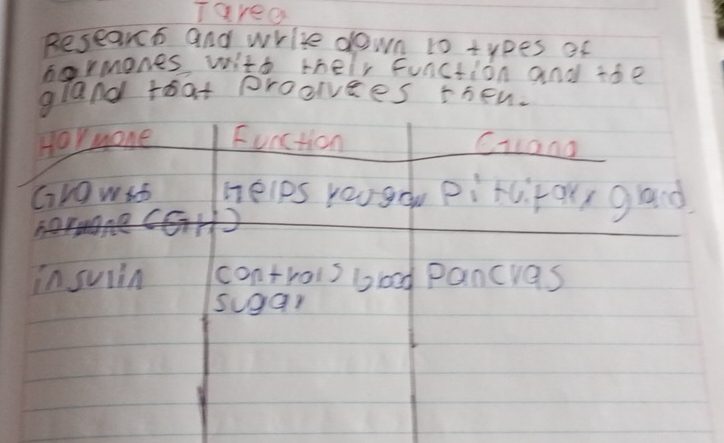 Tarea
Research and write down 10 types of
hormones, with their function and the
gland that produces them.
Hormone Function Gland
Growth Helps you grow Pituitary gland
hormone (GH)
insulin controls blood Pancras
sugar